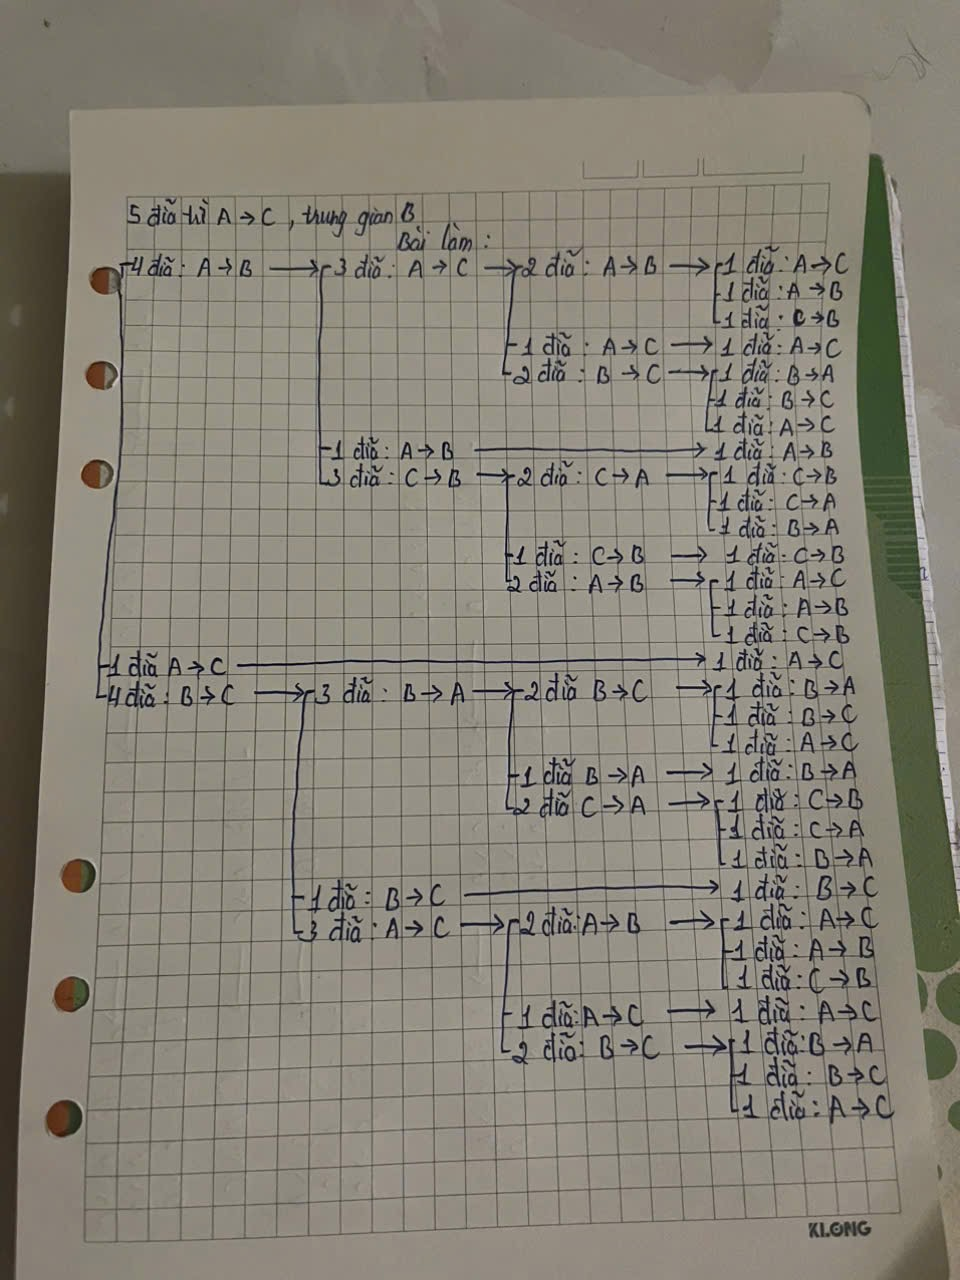 5 đĩa từ A → C, trung gian B
Bài làm:
4 đĩa: A → B → 3 đĩa: A → C → 2 đĩa: A → B → 1 đĩa: A → C
1 đĩa: A → B
1 đĩa: C → B
1 đĩa: A → C → 1 đĩa: A → C
2 đĩa: B → C → 1 đĩa: B → A
1 đĩa: B → C
1 đĩa: A → C
1 đĩa: A → B → 1 đĩa: A → B
3 đĩa: C → B → 2 đĩa: C → A → 1 đĩa: C → B
1 đĩa: C → A
1 đĩa: B → A
1 đĩa: C → B → 1 đĩa: C → B
2 đĩa: A → B → 1 đĩa: A → C
1 đĩa: A → B
1 đĩa: C → B
1 đĩa A → C → 1 đĩa: A → C
4 đĩa: B → C → 3 đĩa: B → A → 2 đĩa B → C → 1 đĩa: B → A
1 đĩa: B → C
1 đĩa: A → C
1 đĩa B → A → 1 đĩa: B → A
2 đĩa C → A → 1 đĩa: C → B
1 đĩa: C → A
1 đĩa: B → A
1 đĩa: B → C → 1 đĩa: B → C
3 đĩa: A → C → 2 đĩa: A → B → 1 đĩa: A → C
1 đĩa: A → B
1 đĩa: C → B
1 đĩa: A → C → 1 đĩa: A → C
2 đĩa: B → C → 1 đĩa: B → A
1 đĩa: B → C
1 đĩa: A → C
KLONG